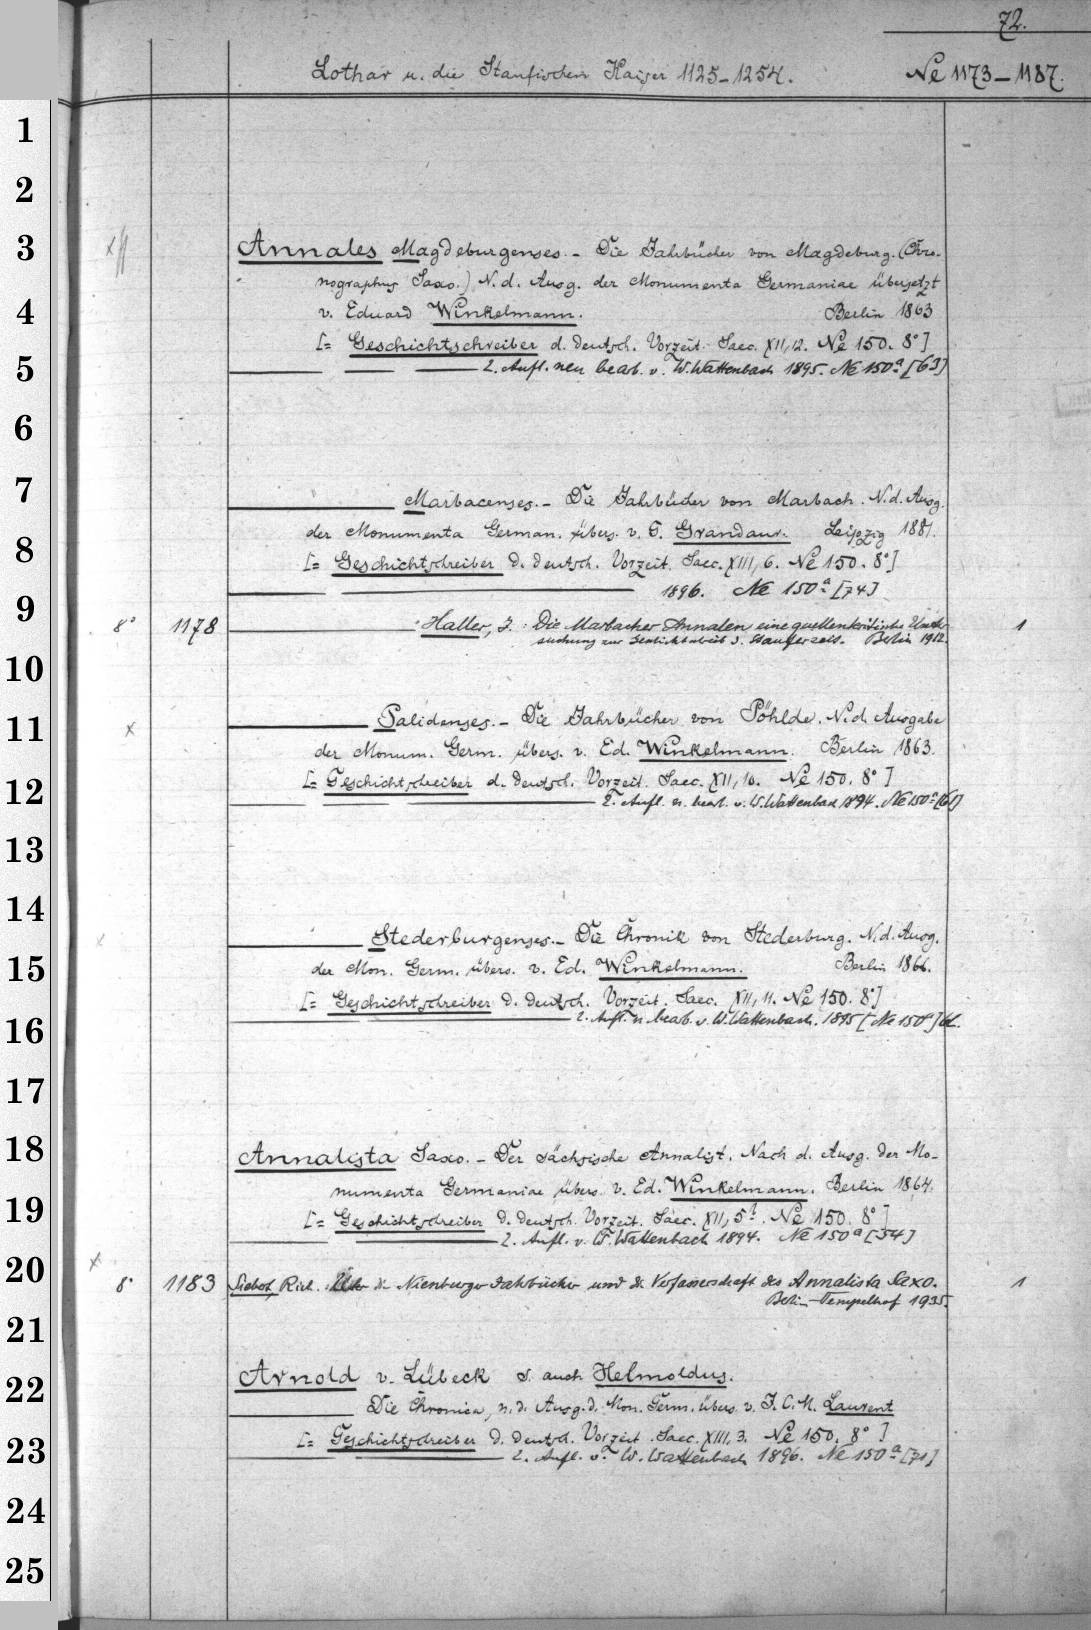 72.
Lothar u. die Staufischen Kaiser 1125–1254. Ne 1173–1187.
1
2
3
Annales Magdeburgenses. – Die Jahrbücher von Magdeburg. (Chro-
nographus Saxo.) N. d. Ausg. der Monumenta Germaniae übersetzt
4
v. Eduard Winkelmann. Berlin 1863
[= Geschichtschreiber d. deutsch. Vorzeit. Saec. XII, 12. Ne 150. 8°]
5
2. Aufl. neu bearb. v. W. Wattenbach 1895. Ne 150a [63]
6
7
Marbacenses. – Die Jahrbücher von Marbach. N. d. Ausg.
der Monumenta German. übers. v. G. Grandaur. Leipzig 1881.
8
[= Geschichtschreiber d. deutsch. Vorzeit. Saec. XIII, 6. Ne 150. 8°]
1896. Ne 150a [74]
9
8° 1178 Haller, J.: Die Marbacher Annalen eine quellenkritische Unter-
suchung zur Geschichtschreib. d. Stauferzeit. Berlin 1912. 1
10
11
Palidenses. – Die Jahrbücher von Pöhlde. N. d. Ausgabe
der Monum. Germ. übers. v. Ed. Winkelmann. Berlin 1863.
12
[= Geschichtschreiber d. deutsch. Vorzeit. Saec. XII, 10. Ne 150. 8°]
2. Aufl. n. bearb. v. W. Wattenbach 1894. Ne 150a [61]
13
14
Stederburgenses. – Die Chronik von Stederburg. N. d. Ausg.
15
der Mon. Germ. übers. v. Ed. Winkelmann. Berlin 1866.
[= Geschichtschreiber d. deutsch. Vorzeit. Saec. XII, 11. Ne 150. 8°]
16
2. Aufl. n. bearb. v. W. Wattenbach. 1895 [Ne 150a] 62.
17
18
Annalista Saxo. – Der sächsische Annalist. Nach d. Ausg. der Mo-
numenta Germaniae übers. v. Ed. Winkelmann. Berlin 1864.
19
[= Geschichtschreiber d. deutsch. Vorzeit. Saec. XII, 5. Ne 150. 8°]
2. Aufl. v. W. Wattenbach 1894. Ne 150a [54]
20
8° 1183 Siebert, Rich.: Über die Nienburger Jahrbücher und die Verfasserschaft des Annalista Saxo. 1
Berlin-Tempelhof 1935.
21
22
Arnold v. Lübeck s. auch Helmoldus.
Die Chronica, n. d. Ausg. d. Mon. Germ. übers. v. J. C. M. Laurent
23
[= Geschichtschreiber d. deutsch. Vorzeit. Saec. XIII, 3. Ne 150. 8°]
2. Aufl. v. W. Wattenbach 1896. Ne 150a [71]
24
25